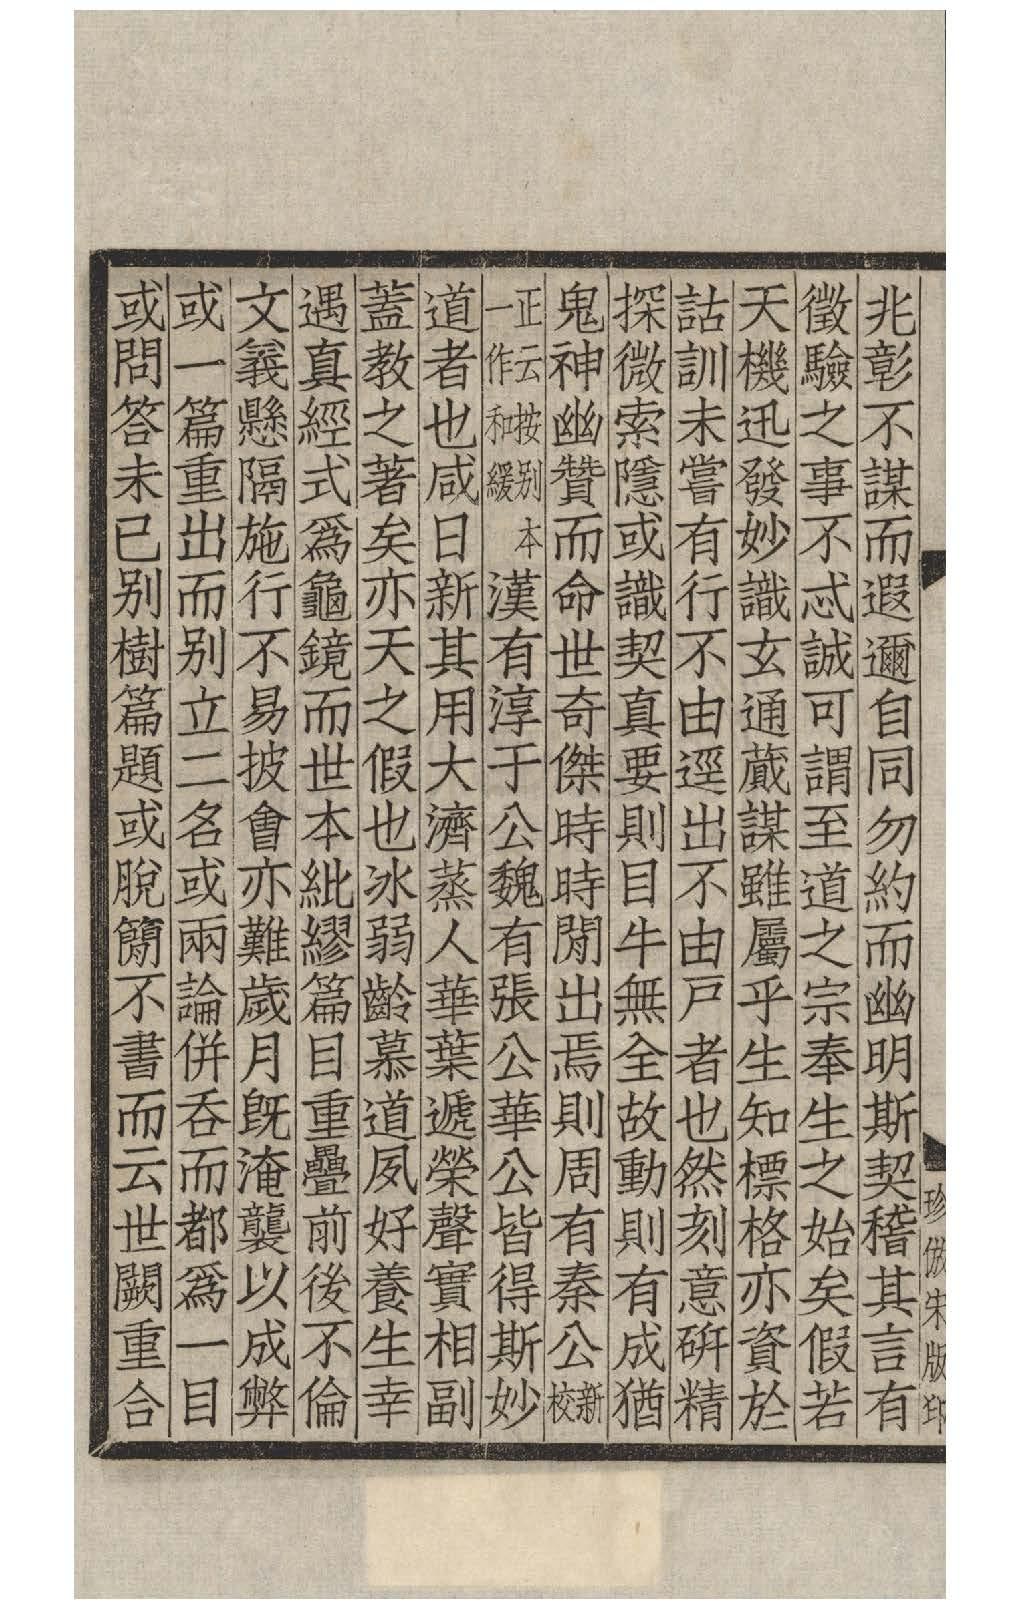 兆彰不謀而遐邇自同勿約而幽明斯契稽其言有
徵驗之事不忒誠可謂至道之宗奉生之始矣假若
天機迅發妙識玄通蕆謀雖屬乎生知標格亦資於
詁訓未嘗有行不由逕出不由戸者也然刻意硏精
探微索隱或識契真要則目牛無全故動則有成猶
鬼神幽贊而命世奇傑時時閒出焉則周有秦公新校
正云按别本一作和緩漢有淳于公魏有張公華公皆得斯妙
道者也咸日新其用大濟蒸人華葉遞榮聲實相副
蓋教之著矣亦天之假也冰弱齡慕道夙好養生幸
遇真經式爲龜鏡而世本紕繆篇目重疊前後不倫
文義懸隔施行不易披會亦難歲月旣淹襲以成弊
或一篇重出而别立二名或兩論併吞而都爲一目
或問答未已别樹篇題或脫簡不書而云世闕重合
珍倣宋版印